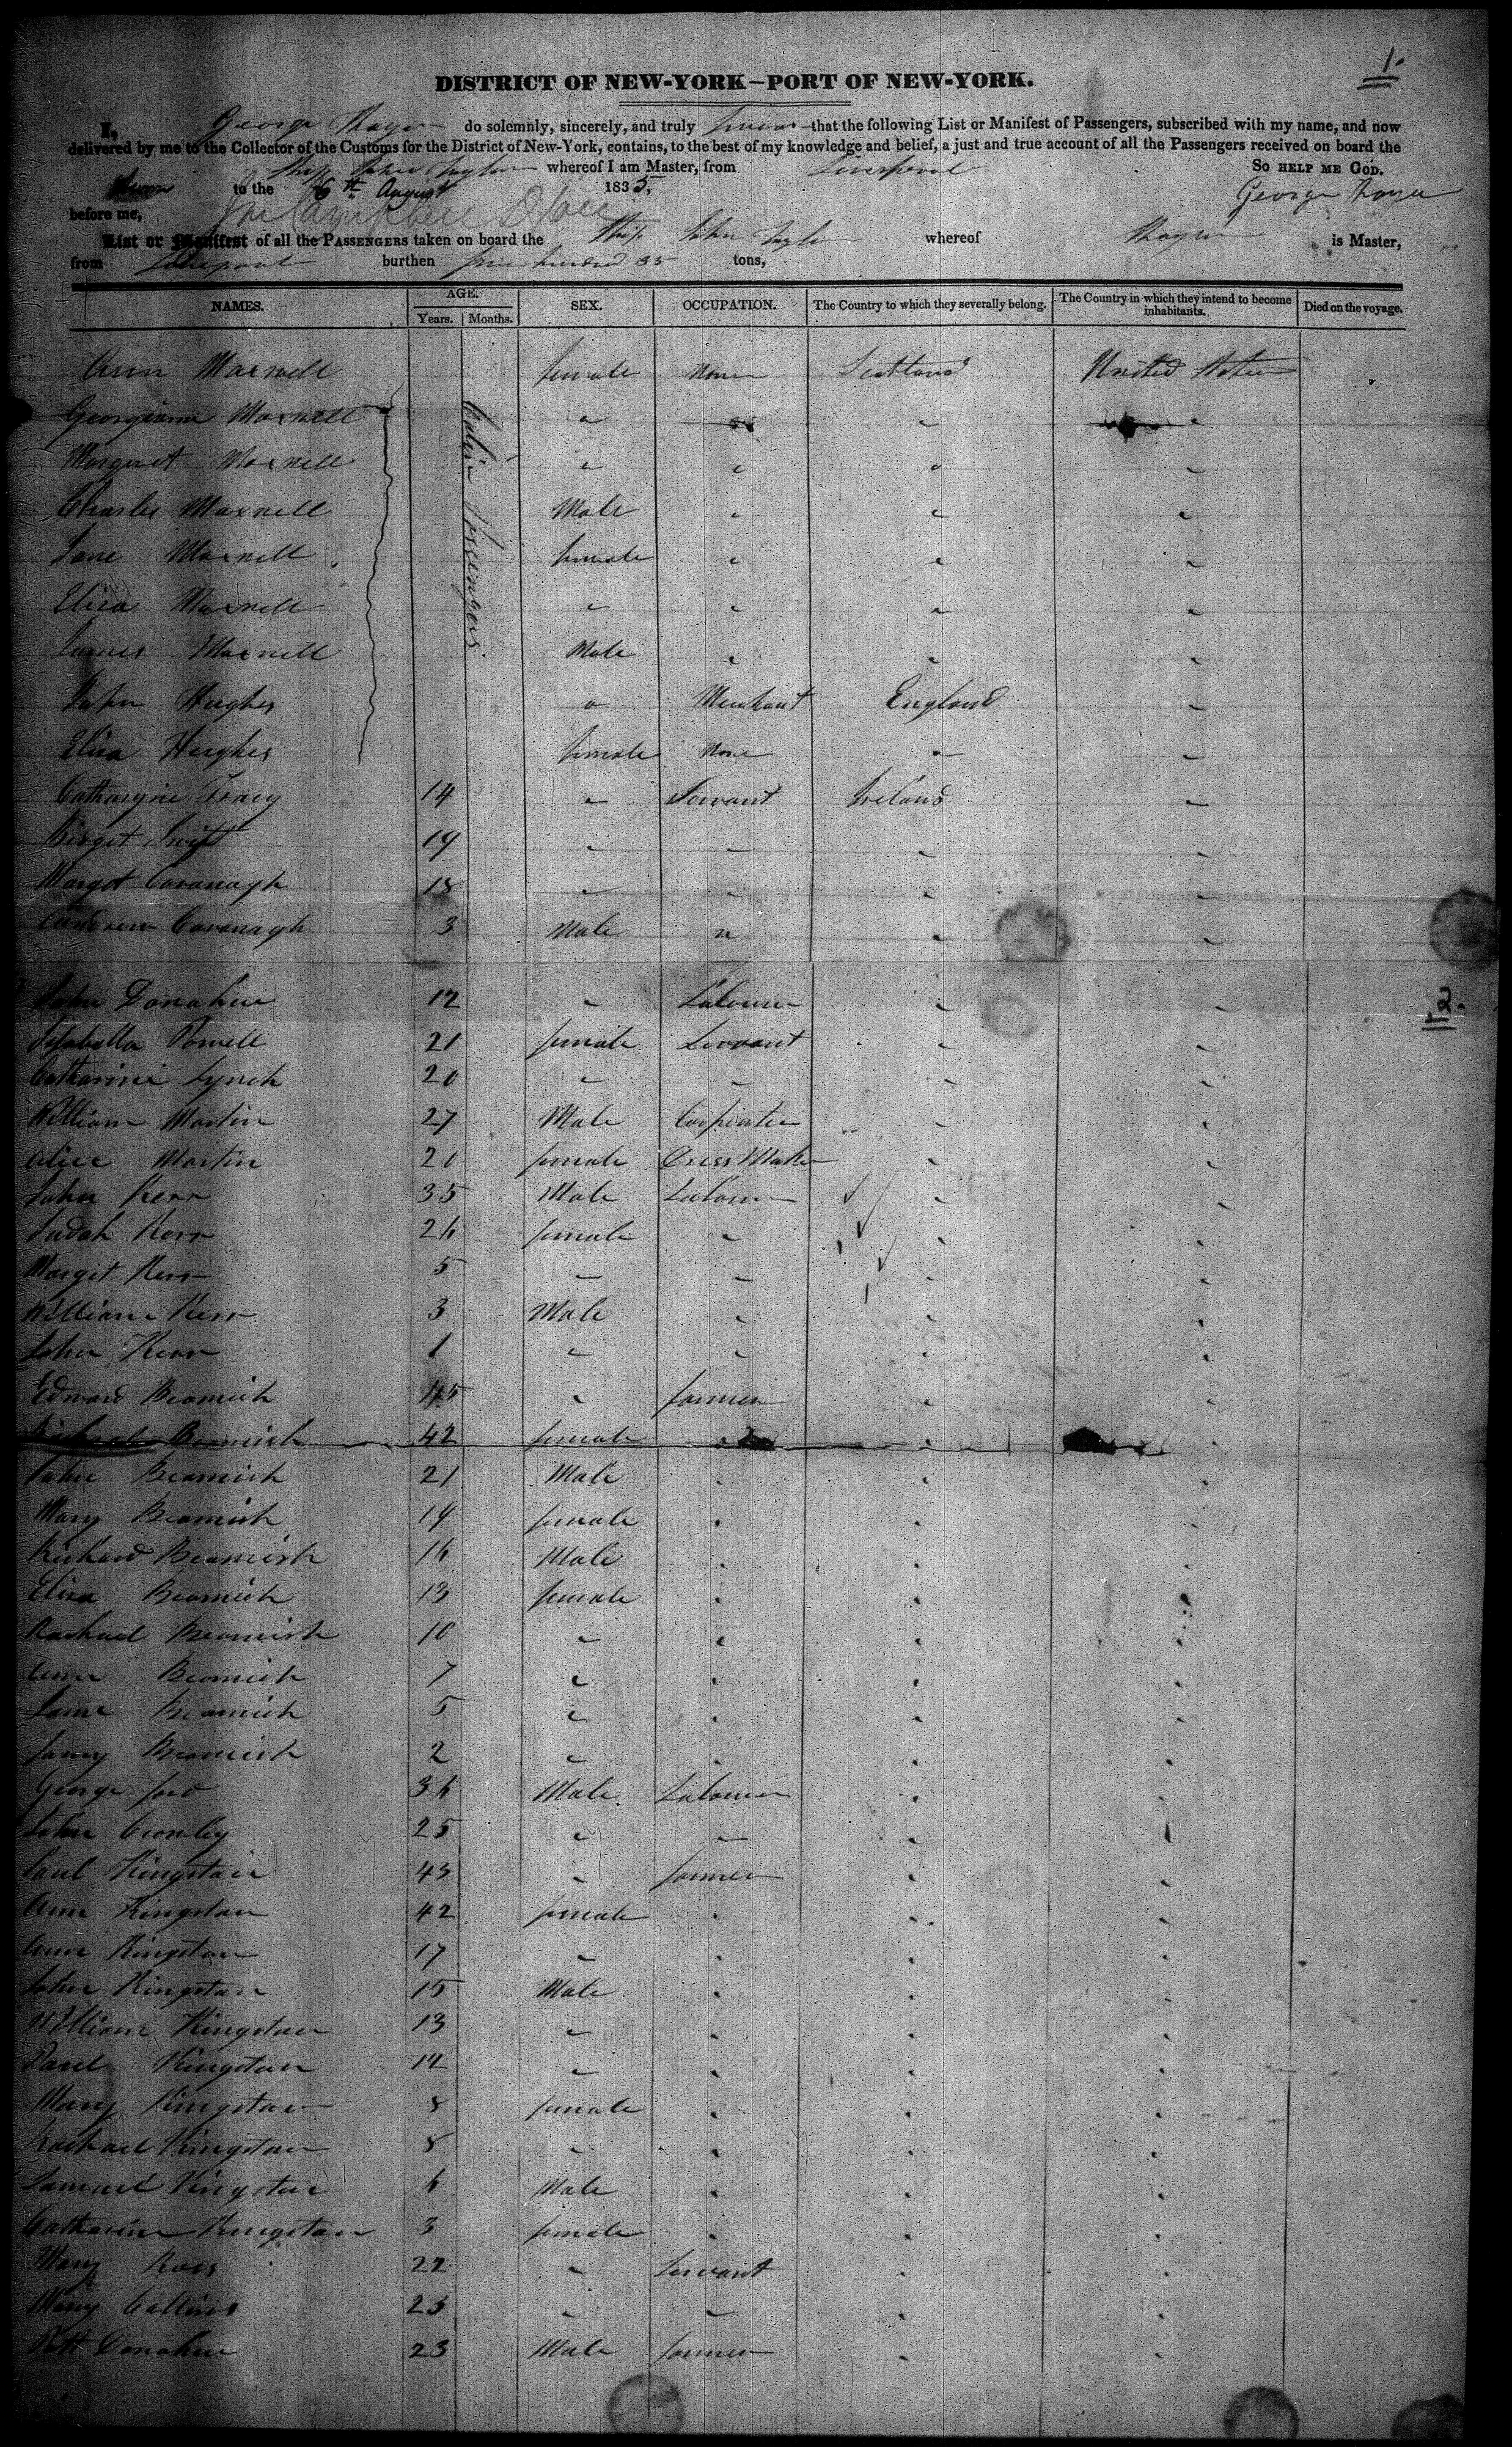 1.
DISTRICT OF NEW-YORK—PORT OF NEW-YORK.
I, George Thayer do solemnly, sincerely, and truly swear that the following List or Manifest of Passengers, subscribed with my name, and now
delivered by me to the Collector of the Customs for the District of New-York, contains, to the best of my knowledge and belief, a just and true account of all the Passengers received on board the
Ship John Taylor whereof I am Master, from Liverpool SO HELP ME GOD.
Sworn to the 6th August 1835, George Thayer
before me,
List or Manifest of all the PASSENGERS taken on board the Ship John Taylor whereof Thayer is Master,
from Liverpool burthen five hundred 35 tons,
NAMES. AGE. SEX. OCCUPATION. The Country to which they severally belong. The Country in which they intend to become inhabitants. Died on the voyage.
Years. Months.
Cabin Passengers
Ann Maxwell female None Scotland United States
Georgiana Maxwell " " " "
Margaret Maxwell " " " "
Charles Maxwell Male " " "
Jane Maxwell female " " "
Eliza Maxwell " " " "
James Maxwell Male " " "
John Hughes " Merchant England "
Eliza Hughes female None " "
Catharyne Tracy 14 " Servant Ireland "
Birget Swift 19 " " " "
Margot Cavanagh 18 " " " "
Cavanagh 3 Male " " "
2.
John Donahue 12 " Labourer " "
Isabella Powell 21 female Servant " "
Catharine Lynch 20 " " " "
William Martin 27 Male Carpenter " "
Alice Martin 21 female Dress Maker " "
John Kerr 35 Male Labourer " "
Judah Kerr 26 female " " "
Margit Kerr 5 " " " "
William Kerr 3 Male " " "
John Kerr 1 " " " "
Edward Beamish 45 " farmer " "
Beamish 42 female " " "
John Beamish 21 Male " " "
Mary Beamish 19 female " " "
Richard Beamish 16 Male " " "
Eliza Beamish 13 female " " "
Rachael Beamish 10 " " " "
Ann Beamish 7 " " " "
Jane Beamish 5 " " " "
Beamish 2 " " " "
George ford 36 Male Labourer " "
John Crowley 25 " " " "
Paul Kingstan 45 " farmer " "
Ann Kingstan 42 female " " "
Ann Kingstan 17 " " " "
John Kingstan 15 Male " " "
William Kingstan 13 " " " "
Paul Kingstan 12 " " " "
Mary Kingstan 8 female " " "
Rachael Kingstan 8 " " " "
Samuel Kingstan 6 Male " " "
Catharine Kingstan 3 female " " "
Mary Ross 22 " Servant " "
Mary Collins 25 " " " "
Patt Donahue 23 Male farmer " "